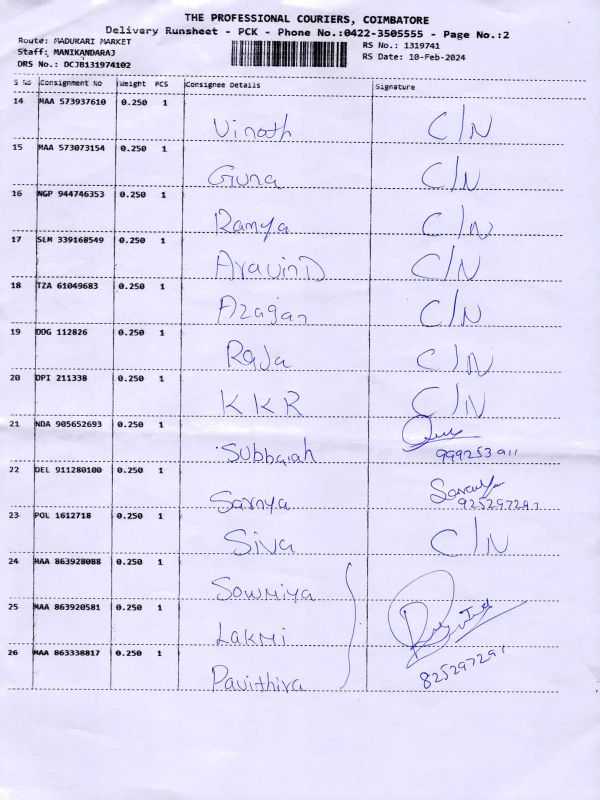 THE PROFESSIONAL COURIERS, COIMBATORE
Delivery Runsheet - PCK - Phone No.:0422-3505555 - Page No.:2
Route: MADUKARI MARKET
RS No.: 1319741
Staff: MANIKANDARAJ
RS Date: 10-Feb-2024
DRS No.: DCJB131974102
S No Consignment No Weight PCS Consignee Details Signature
14 MAA 573937610 0.250 1 Vinoth C/N
15 MAA 573073154 0.250 1 Guna C/N
16 NGP 944746353 0.250 1 Ramya C/N
17 SLM 339168549 0.250 1 AravinD C/N
18 TZA 61049683 0.250 1 Azagan C/N
19 DDG 112826 0.250 1 Raja C/N
20 DPI 211338 0.250 1 KKR C/N
21 NDA 905652693 0.250 1 Subbaiah 999253911
22 DEL 911280100 0.250 1 Sarnya 925297291
23 POL 1612718 0.250 1 Siva C/N
24 MAA 863928088 0.250 1 Sowmiya
25 MAA 863920581 0.250 1 Lakmi
26 MAA 863338817 0.250 1 Pavithira 825297291